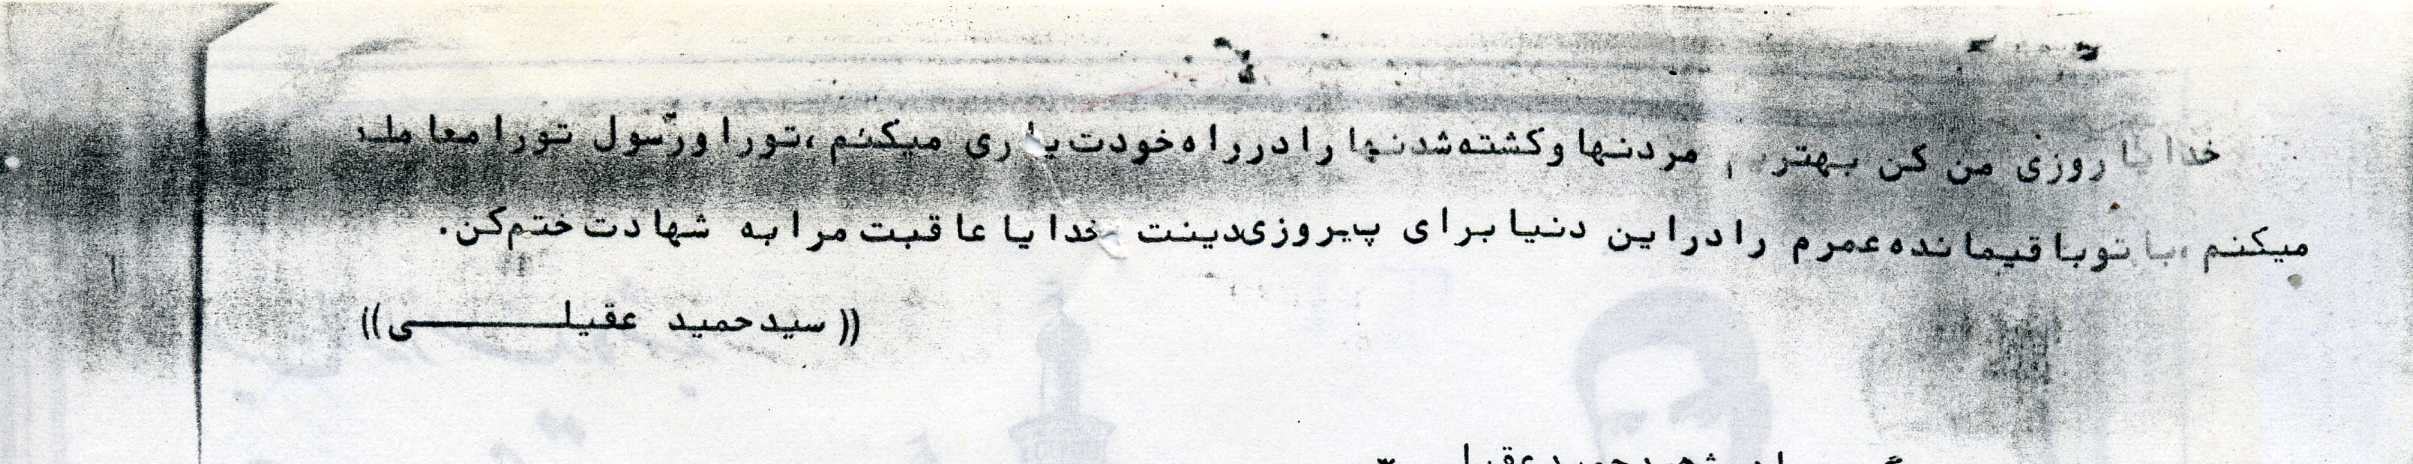 خدایا روزی من کن بهترین مردنها و کشته شدنها را در راه خودت یاری میکنم ،تورا و رسول تورا معامله
میکنم ،با تو باقیمانده عمرم را در این دنیا برای پیروزی دینت خدایا عاقبت مرا به شهادت ختم کن.
(( سید حمید عقیلــــــــی))
شهید حمید عقیلی